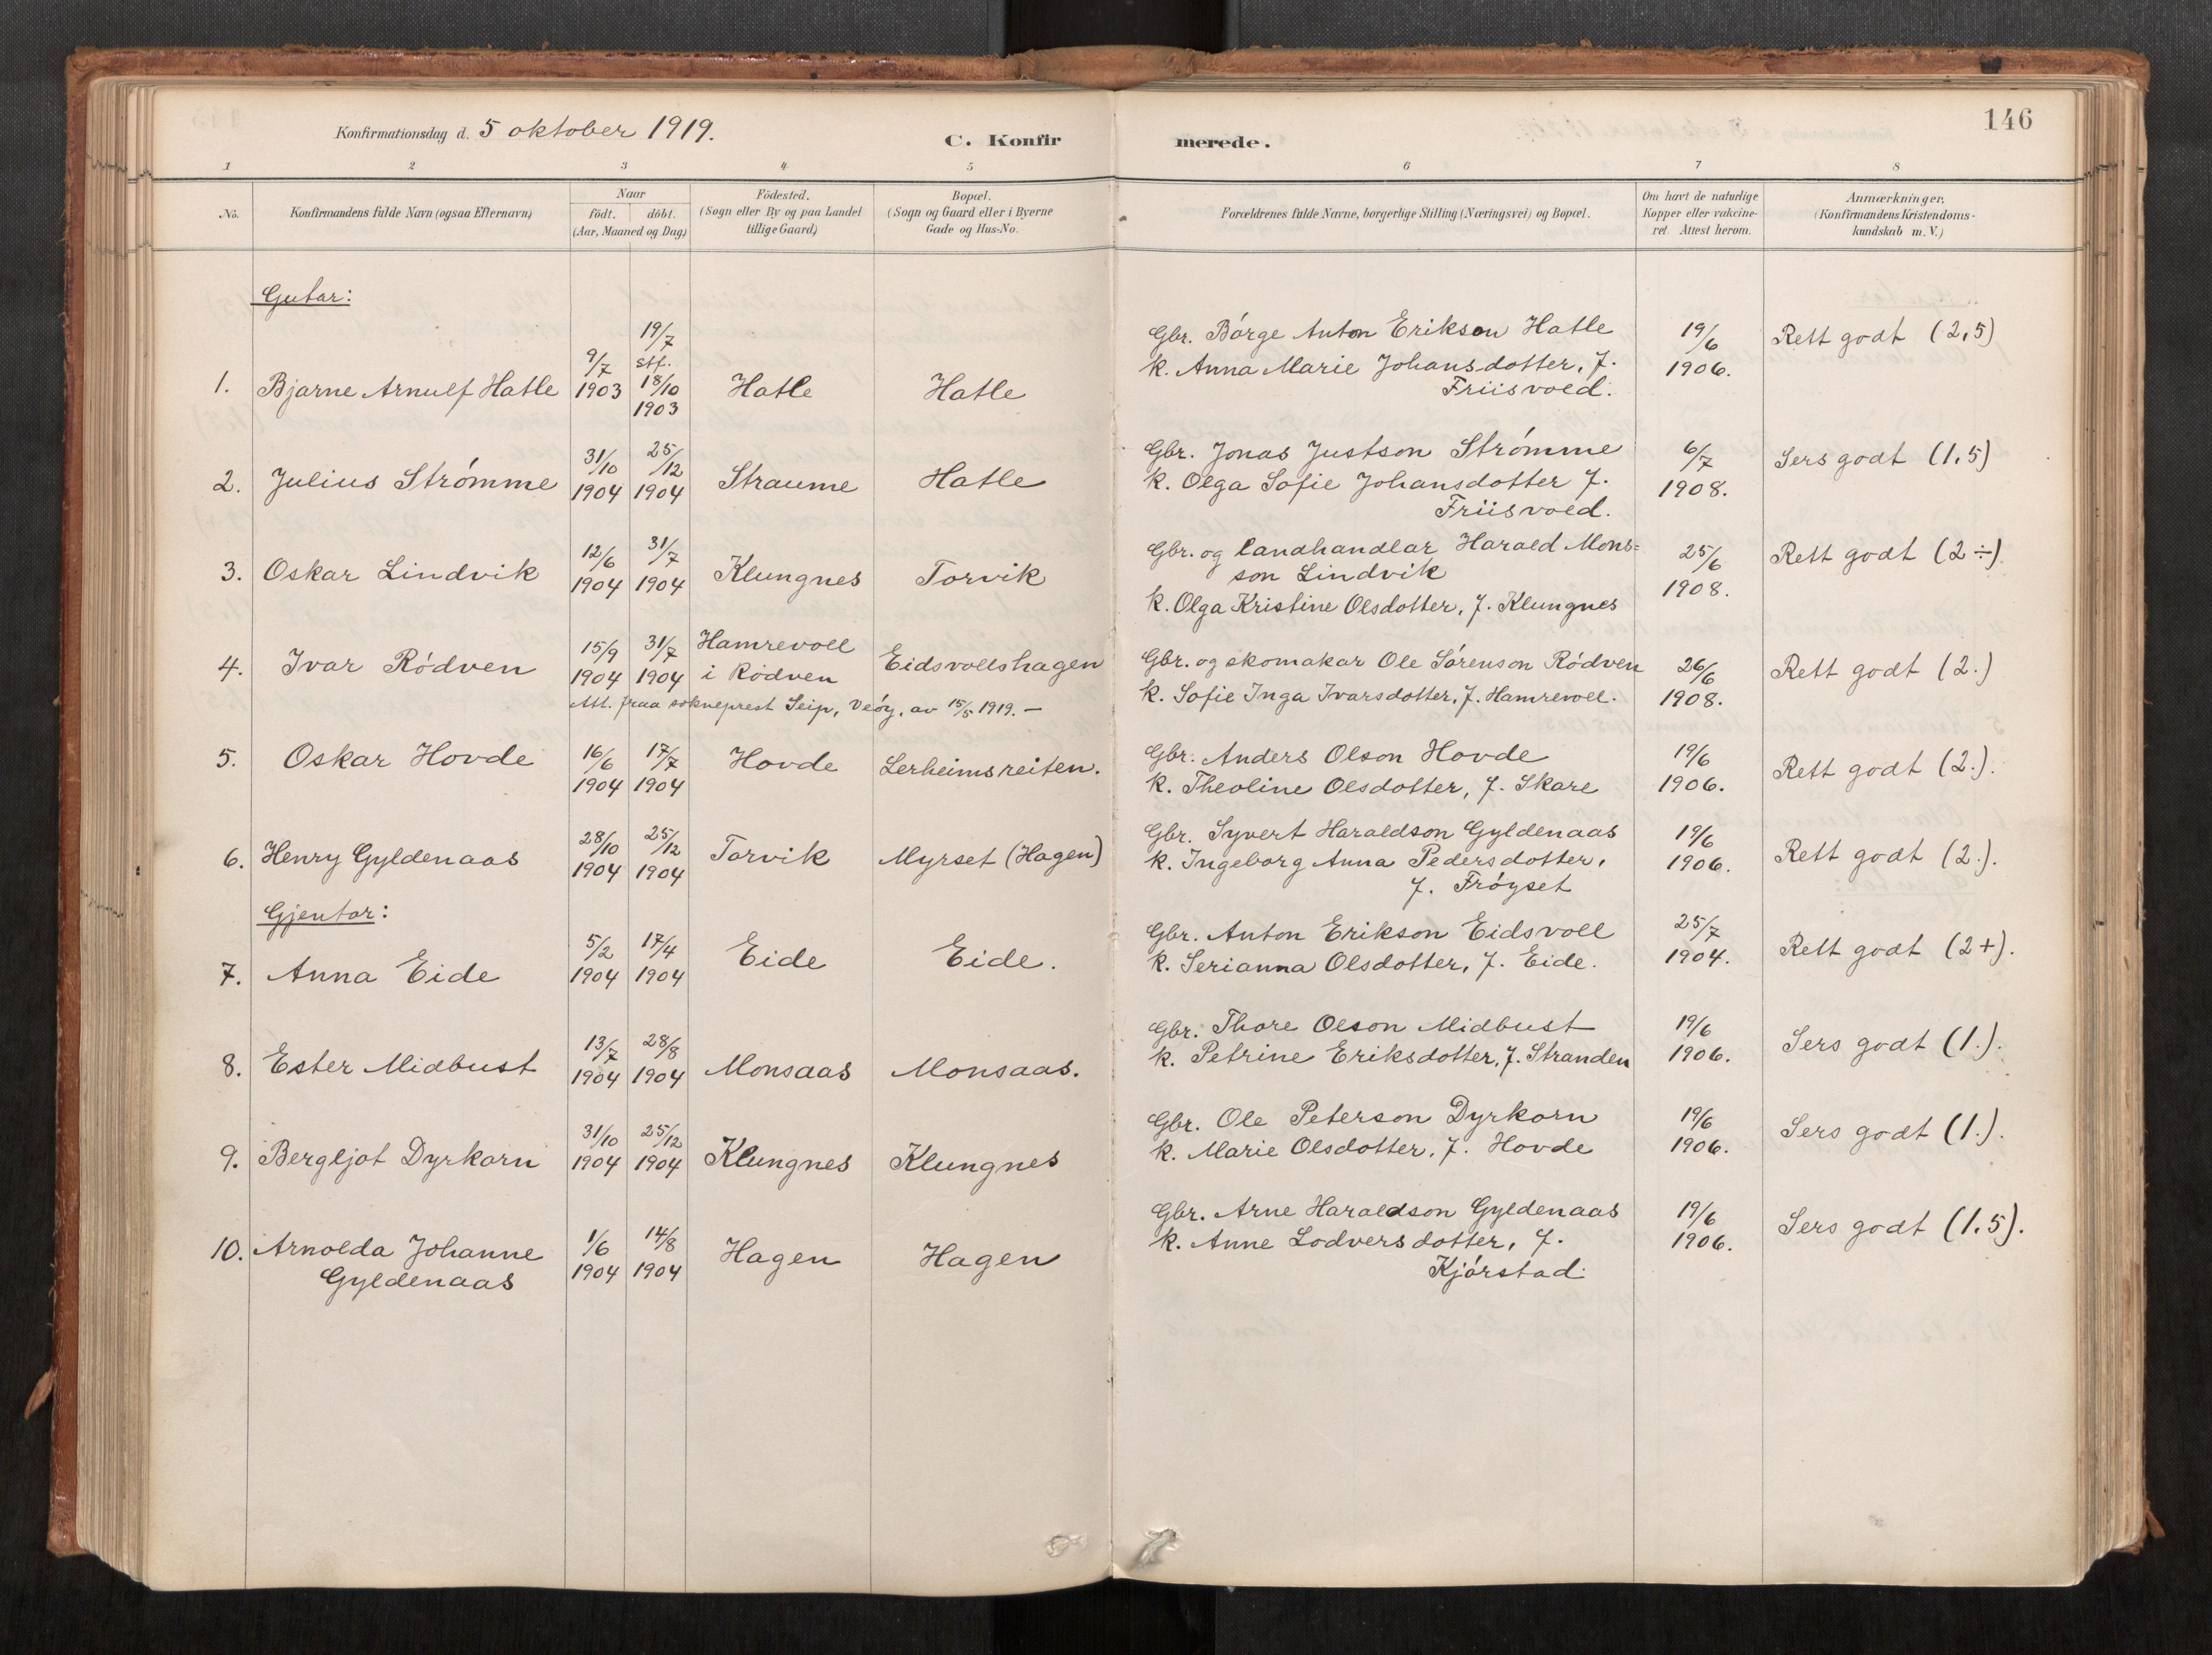 146
Konfirmationsdag d. 5 oktober 1919.
C. Konfirmerede.
1 2 3 4 5 6 7 8
No.
Konfirmandens fulde Navn (ogsaa Efternavn)
Naar
födt. döbt.
(Aar, Maaned og Dag)
Födested.
(Sogn eller By og paa Landet
tillige Gaard)
Bopæl.
(Sogn og Gaard eller i Byerne
Gade og Hus-No.
Forældrenes fulde Navne, borgerlige Stilling (Næringsvei) og Bopæl.
Om havt de naturlige
Kopper eller vakcine-
ret. Attest herom.
Anmærkninger,
(Konfirmandens Kristendoms-
kundskab m. V.)
Gutar:
1. Bjarne Arnulf Hatle 9/7 1903 19/7 stf. 18/10 1903 Hatle Hatle
Gbr. Börge Anton Erikson Hatle
k. Anna Marie Johansdotter, f.
Friisvold.
19/6 1906. Rett godt (2,5)
2. Julius Strömme 31/10 1904 25/12 1904 Straume Hatle
Gbr. Jonas Justson Strömme
k. Olga Sofie Johansdotter f.
Friisvold.
6/7 1908. Sers godt (1.5)
3. Oskar Lindvik 12/6 1904 31/7 1904 Klungnes Torvik
Gbr. og landhandlar Harald Mons=
son Lindvik
k. Olga Kristine Olsdotter, f. Klungnes
25/6 1908. Rett godt (2÷).
4. Ivar Rödven 15/9 1904 31/7 1904 Hamrevoll i Rödven Eidsvollshagen
Att. fraa sokneprest Seip, Veöy, av 15/5 1919. —
Gbr. og skomakar Ole Sörenson Rödven
k. Sofie Inga Ivarsdotter, f. Hamrevoll.
26/6 1908. Rett godt (2.)
5. Oskar Hovde 16/6 1904 17/7 1904 Hovde Lerheimsreiten.
Gbr. Anders Olson Hovde
k. Theoline Olsdotter, f. Skare
19/6 1906. Rett godt (2.).
6. Henry Gyldenaas 28/10 1904 25/12 1904 Torvik Myrset (Hagen)
Gbr. Syvert Haraldson Gyldenaas
k. Ingeborg Anna Pedersdotter,
f. Fröyset
19/6 1906. Rett godt (2.).
Gjentor:
7. Anna Eide 5/2 1904 17/4 1904 Eide Eide.
Gbr. Anton Erikson Eidsvoll
k. Serianna Olsdotter, f. Eide.
25/7 1904. Rett godt (2+).
8. Ester Midbust 13/7 1904 28/8 1904 Monsaas Monsaas.
Gbr. Thore Olson Midbust
k. Petrine Eriksdotter, f. Stranden
19/6 1906. Sers godt (1.).
9. Bergljot Dyrkorn 31/10 1904 25/12 1904 Klungnes Klungnes
Gbr. Ole Peterson Dyrkorn
k. Marie Olsdotter, f. Hovde
19/6 1906. Sers godt (1.).
10. Arnolda Johanne
Gyldenaas 1/6 1904 14/8 1904 Hagen Hagen
Gbr. Arne Haraldson Gyldenaas
k. Anne Lodversdotter, f.
Kjörstad.
19/6 1906. Sers godt (1.5).